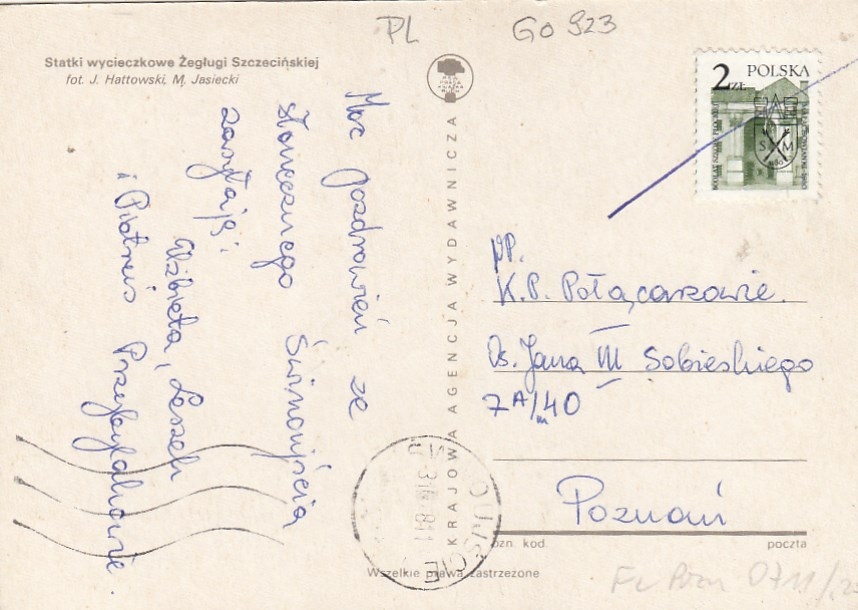 PL
Go 923
Statki wycieczkowe Żeglugi Szczecińskiej
fot. J. Hattowski, M. Jasiecki
Moc pozdrowień ze
słonecznego Świnoujścia
zasyłają:
Elżbieta, Leszek
i Piotruś Przybylakowie.
KRAJOWA AGENCJA WYDAWNICZA
2 ZŁ POLSKA
S M
WP.
K.P. Połączarzowie.
Os. Jana III Sobieskiego
7A/m 40
Poznań
ozn. kod
poczta
Wszelkie prawa zastrzezone